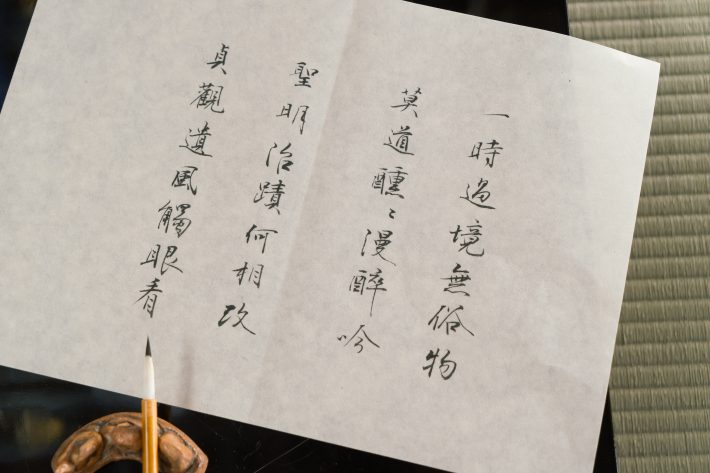 一時過境無俗物
莫道醺〻漫醉吟
聖明治蹟何相攷
貞觀遺風觸眼看